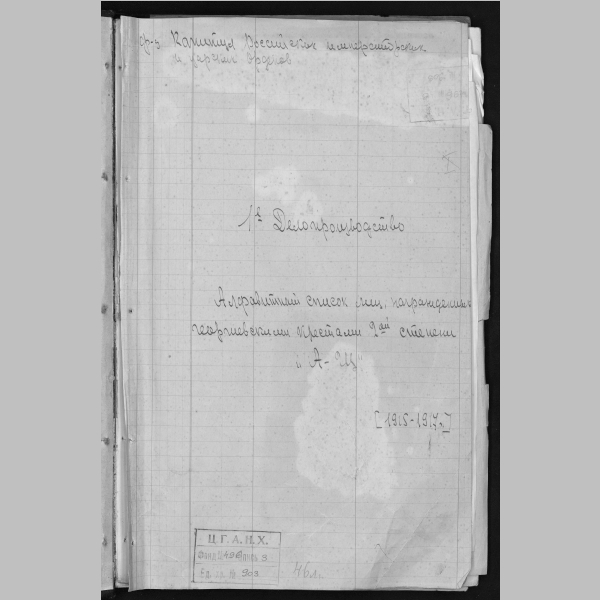 Капитул Российских императорских
и царских орденов
1е Делопроизводство
Алфавитный список лиц, награжденных
георгиевскими крестами 2ой степени
"А-Щ"
[1915-1917г.]
Ц.Г.А.И.Х.
Фонд 496 опись 3
Ед. хр. № 903
46л.